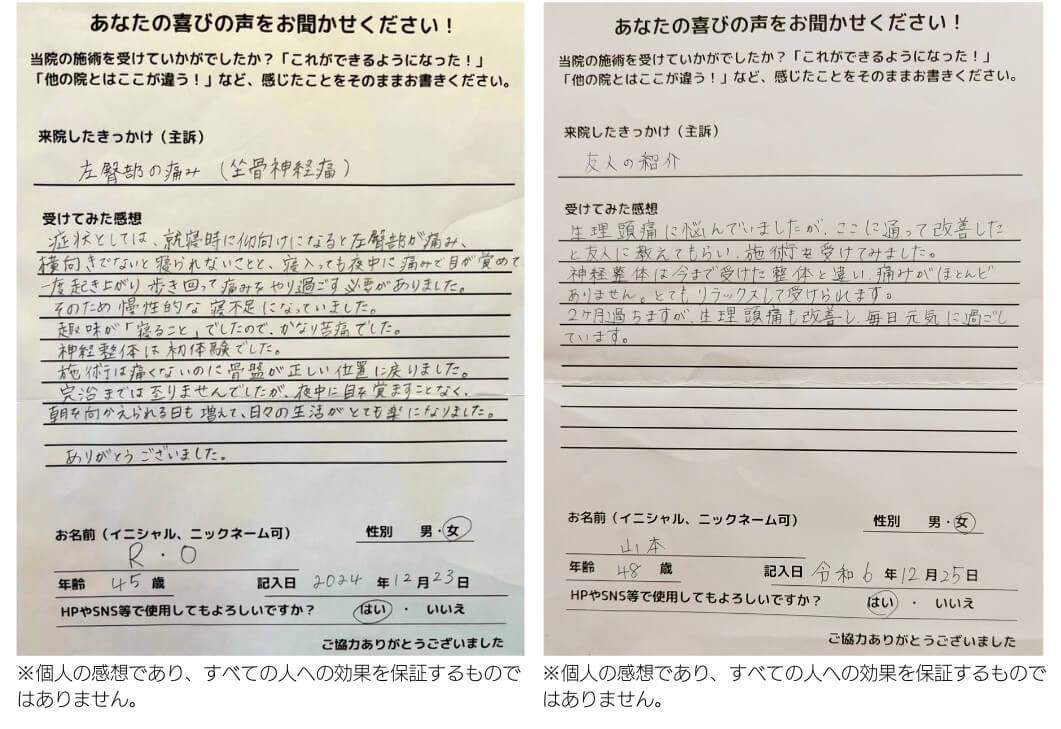 あなたの喜びの声をお聞かせください！
当院の施術を受けていかがでしたか？「これができるようになった！」
「他の院とはここが違う！」など、感じたことをそのままお書きください。
来院したきっかけ（主訴）
左臀部の痛み（坐骨神経痛）
受けてみた感想
症状としては、就寝時に仰向けになると左臀部が痛み、
横向きでないと寝られないことと、寝入っても夜中に痛みで目が覚めて
一度起き上がり歩き回って痛みをやり過ごす必要がありました。
そのため慢性的な寝不足になっていました。
趣味が「寝ること」でしたので、かなり苦痛でした。
神経整体は初体験でした。
施術は痛くないのに骨盤が正しい位置に戻りました。
完治までは至りませんでしたが、夜中に目を覚ますことなく、
朝を向かえられる日も増えて、日々の生活がとても楽になりました。
ありがとうございました。
お名前（イニシャル、ニックネーム可） 性別 男・女
R・O
年齢 45 歳 記入日 2024 年 12 月 23 日
HPやSNS等で使用してもよろしいですか？ はい ・ いいえ
ご協力ありがとうございました
※個人の感想であり、すべての人への効果を保証するもので
はありません。
あなたの喜びの声をお聞かせください！
当院の施術を受けていかがでしたか？「これができるようになった！」
「他の院とはここが違う！」など、感じたことをそのままお書きください。
来院したきっかけ（主訴）
友人の紹介
受けてみた感想
生理頭痛に悩んでいましたが、ここに通って改善した
と友人に教えてもらい、施術を受けてみました。
神経整体は今まで受けた整体と違い、痛みがほとんど
ありません。とてもリラックスして受けられます。
2ヶ月過ちますが、生理頭痛も改善し、毎日元気に過ごし
ています。
お名前（イニシャル、ニックネーム可） 性別 男・女
山本
年齢 48 歳 記入日 令和6 年 12 月 25 日
HPやSNS等で使用してもよろしいですか？ はい ・ いいえ
ご協力ありがとうございました
※個人の感想であり、すべての人への効果を保証するもので
はありません。